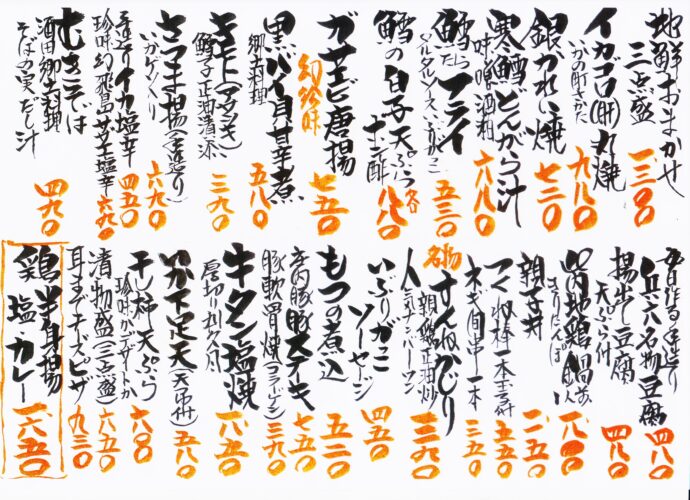 地鮮おまかせ
三点盛
一三〇〇
イカゴロ(肝)丸焼
いかの肝きかた
九八〇
銀かれい焼
七三〇
寒鱈どんがら汁
味噌酒粕
六八〇
鱈フライ
たら
タルタルソースいぶりがこ
五三〇
鱈の白子天ぷら
ポン酢
各
八八〇
ガサエビ唐揚
幻の珍味
七五〇
黒バイ貝甘辛煮
郷土料理
五八〇
鱈子正油漬添
三九〇
さつま揚(手造り)
いかゲソ入り
六九〇
手造りイカ塩辛
四五〇
珍味幻飛島サザエ塩辛
六九〇
むきそば
酒田郷土料理
そばの実だし汁
四九〇
兵六名物豆腐
四八〇
揚出し豆腐
天ぷら付
四八〇
山内地鶏鍋
きりたんぽ
一八〇〇
親子丼
一一五〇
つくね棒一本玉子付
五五〇
ネギ間串一本
三五〇
名物
すんねかじり
親鶏正油炒
人気ナンバーワン
一三九〇
いぶりがこ
ソーセージ
四五〇
もつの煮込
五二〇
庄内豚ステーキ
七五〇
豚軟骨焼(コラーゲン)
三九〇
牛タン塩焼
厚切り
一八五〇
いか下足天(天つゆ付)
五八〇
干し柿天ぷら
珍味かデザートか
六〇〇
漬物盛(三点盛)
六五〇
耳までチーズピザ
九三〇
鶏半身揚
塩カレー
一六五〇